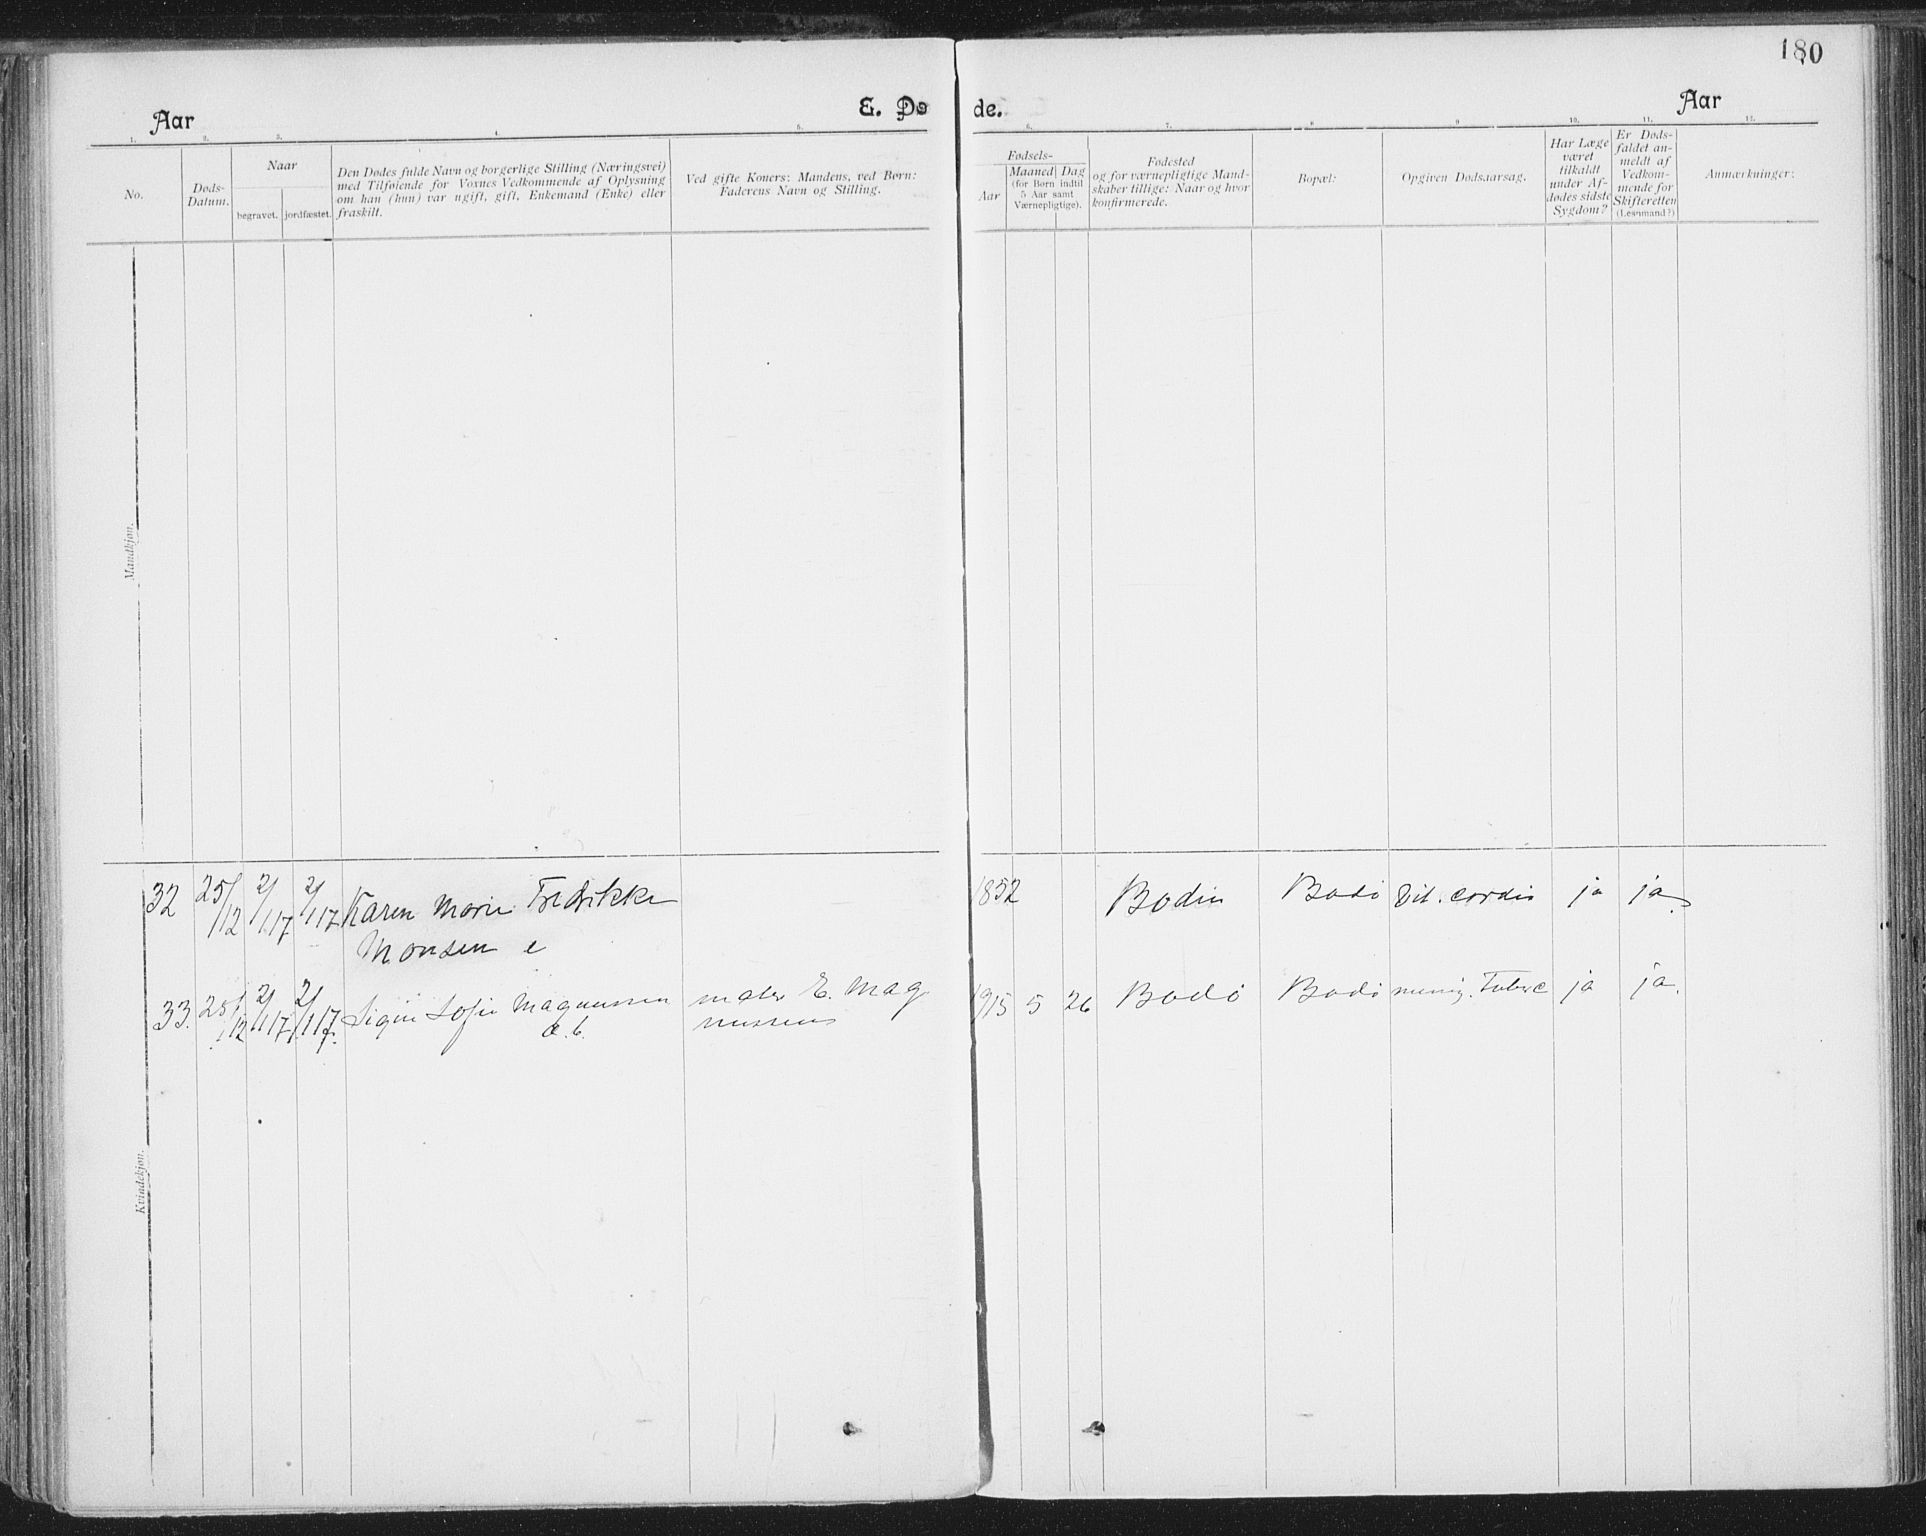 180
Aar
E. Dø
de.
Aar
1. 2. 3. 4. 5. 6. 7. 8 9 10. 11. 12.
No.
Døds-
Datum.
Naar
begravet. jordfæstet.
Den Dødes fulde Navn og borgerlige Stilling (Næringsvei)
med Tilføiende for Voxnes Vedkommende af Oplysning
om han (hun) var ugift, gift, Enkemand (Enke) eller
fraskilt.
Ved gifte Koners: Mandens, ved Børn:
Faderens Navn og Stilling.
Fødsels-
Aar
Maaned Dag
(for Børn indtil
5 Aar samt
Værnepligtige).
Fødested
og for værnepligtige Mand-
skaber tillige: Naar og hvor
konfirmerede.
Bopæl:
Opgiven Dødsaarsag.
Har Læge
været
tilkaldt
under Af-
dødes sidste
Sygdom?
Er Døds-
faldet an-
meldt af
Vedkom-
mende for
Skifteretten
(Lensmand?)
Anmærkninger:
Mandkjøn.
32 25/12 2/1 17 2/1 17 Karen Marie Fredrikke 1852 Bodin Bodø Vit. cordis ja ja
Monsen e
33. 25/12 2/1 17 2/1 17. Signe Sofie Magnussen mater E. Mag 1915 5 26 Bodø Bodø mening. Tuberc ja ja.
æ. b. nussens
Kvindekjøn.